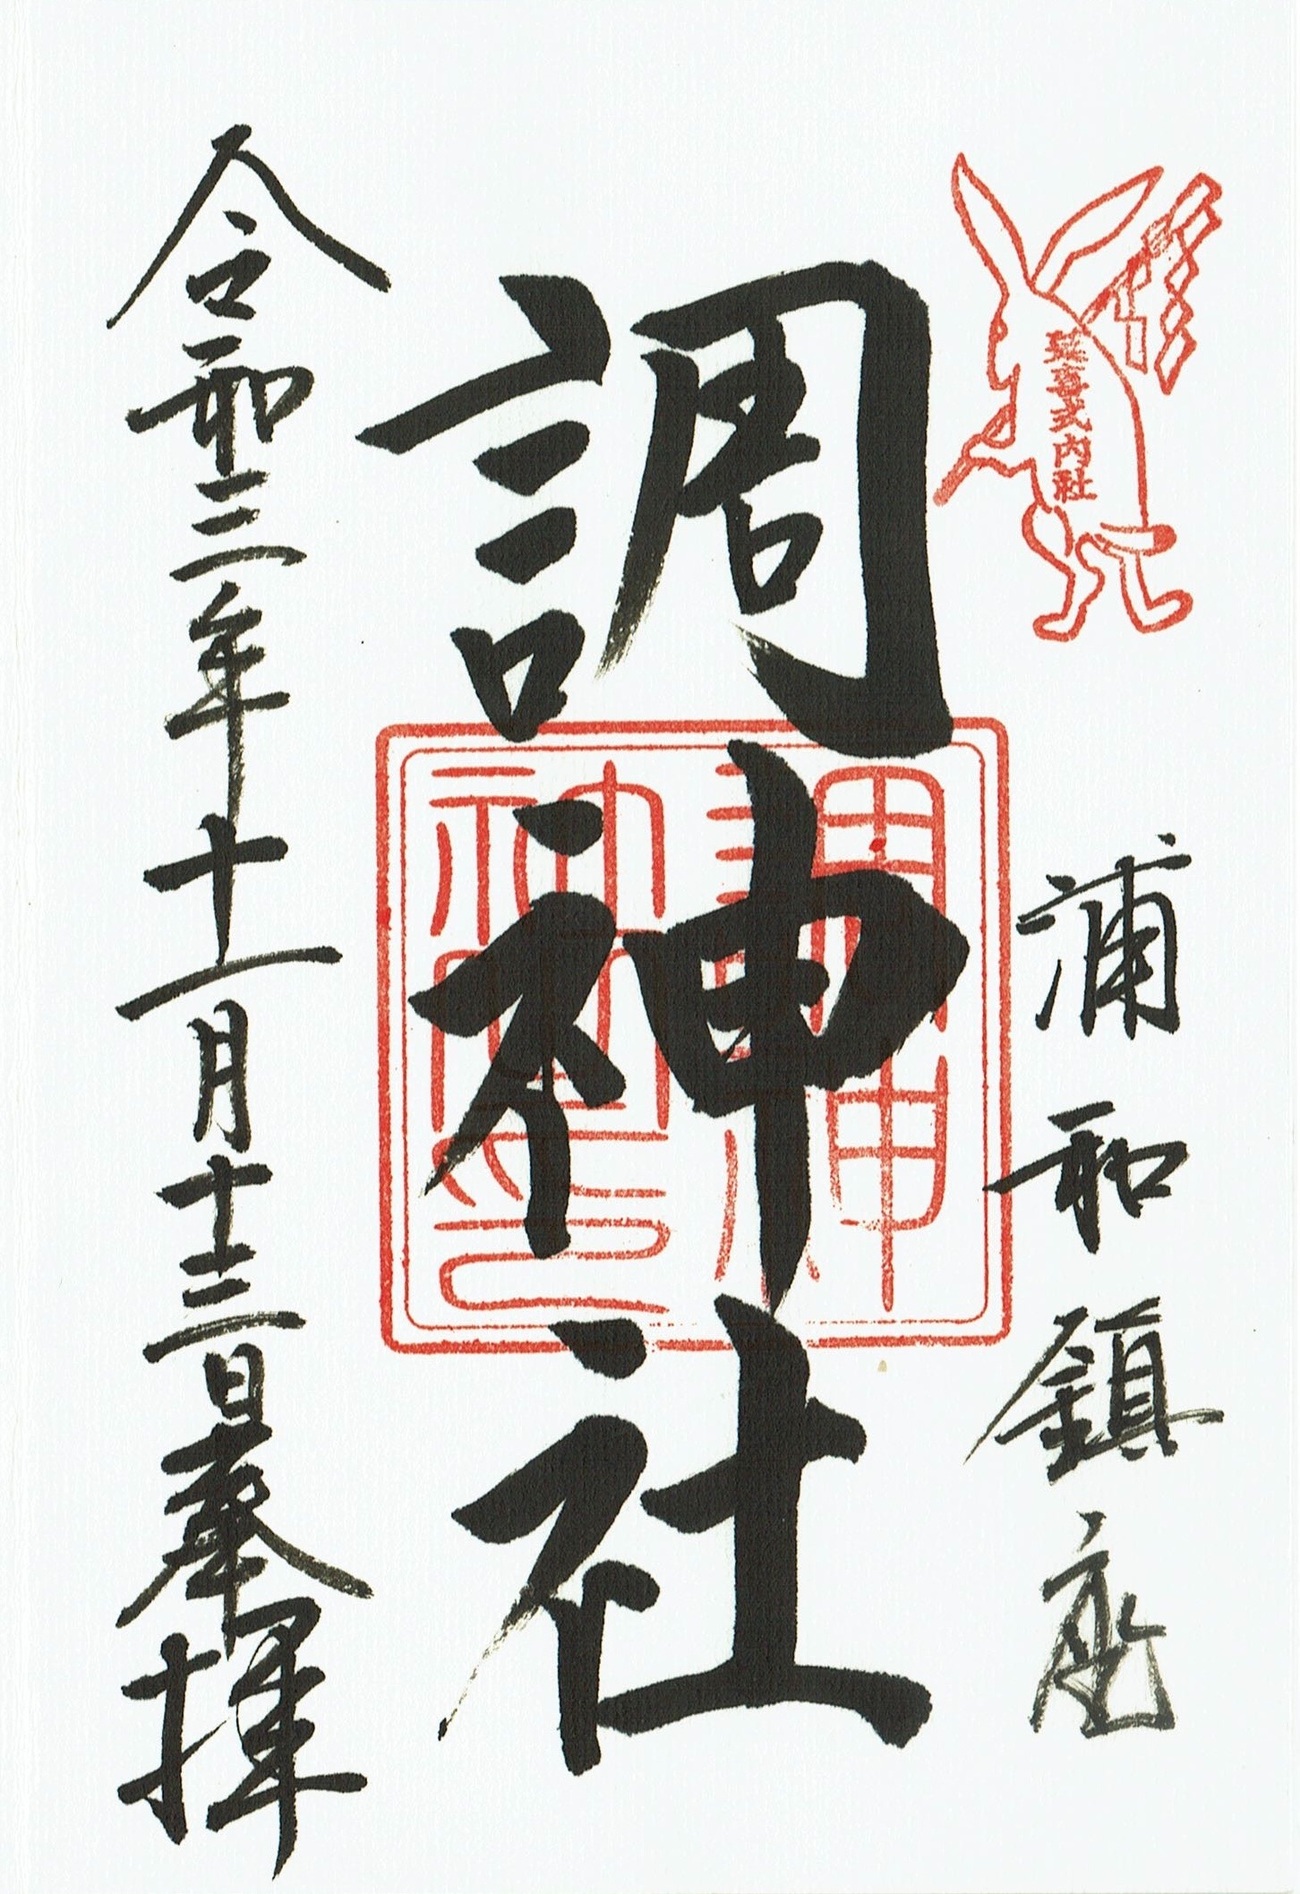 延喜式内社
浦和鎮座
調神社
調神
社印
令和三年十一月十三日奉拝